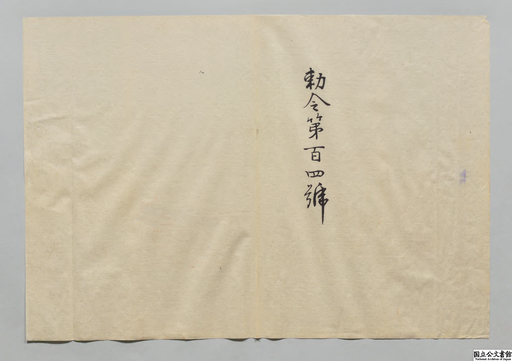 勅令第百四號
国立公文書館
National Archives of Japan